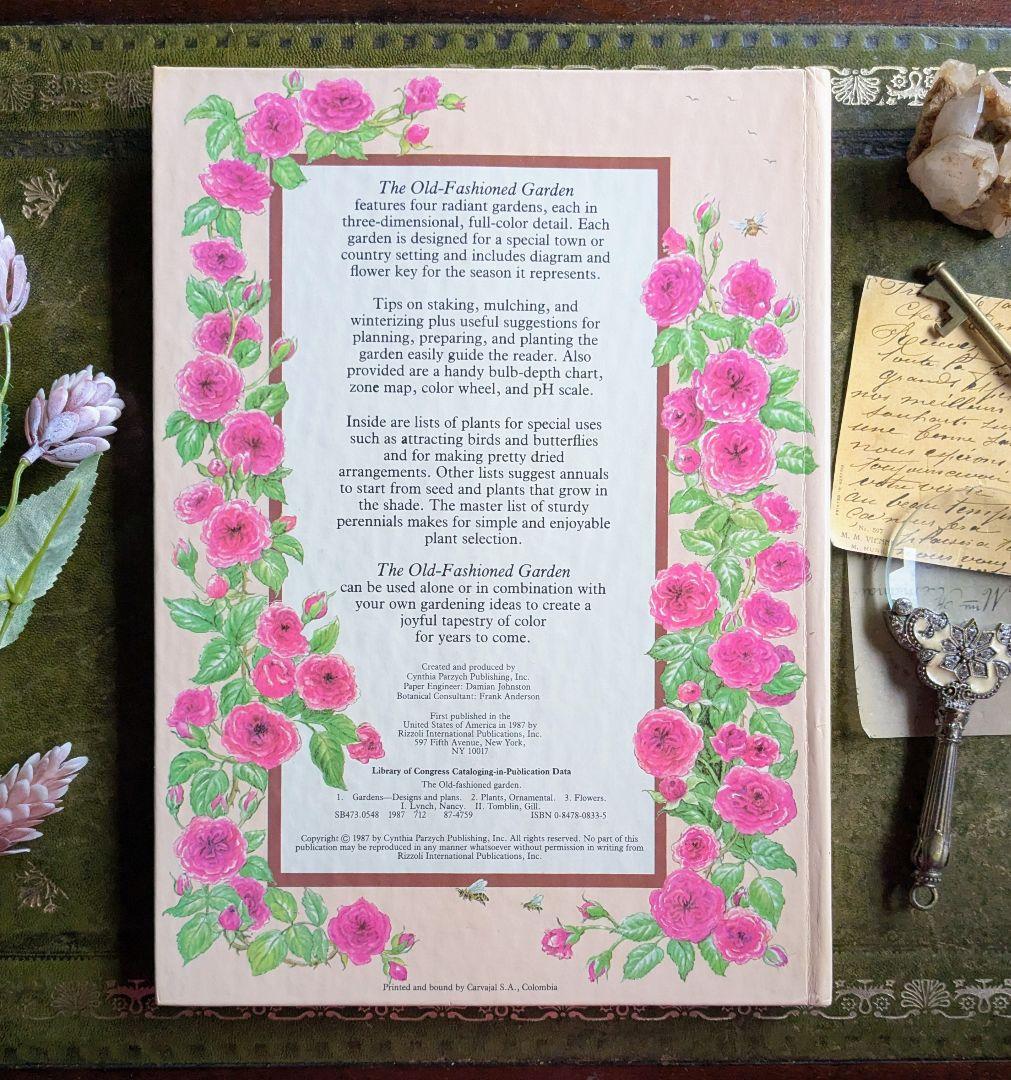 The Old-Fashioned Garden
features four radiant gardens, each in
three-dimensional, full-color detail. Each
garden is designed for a special town or
country setting and includes diagram and
flower key for the season it represents.
Tips on staking, mulching, and
winterizing plus useful suggestions for
planning, preparing, and planting the
garden easily guide the reader. Also
provided are a handy bulb-depth chart,
zone map, color wheel, and pH scale.
Inside are lists of plants for special uses
such as attracting birds and butterflies
and for making pretty dried
arrangements. Other lists suggest annuals
to start from seed and plants that grow in
the shade. The master list of sturdy
perennials makes for simple and enjoyable
plant selection.
The Old-Fashioned Garden
can be used alone or in combination with
your own gardening ideas to create a
joyful tapestry of color
for years to come.
Created and produced by
Cynthia Parzych Publishing, Inc.
Paper Engineer: Damian Johnston
Botanical Consultant: Frank Anderson
First published in the
United States of America in 1987 by
Rizzoli International Publications, Inc.
597 Fifth Avenue, New York,
NY 10017
Library of Congress Cataloging-in-Publication Data
The Old-fashioned garden.
1. Gardens—Designs and plans. 2. Plants, Ornamental. 3. Flowers.
I. Lynch, Nancy. II. Tomblin, Gill.
SB473.0548 1987 712 87-4759 ISBN 0-8478-0833-5
Copyright © 1987 by Cynthia Parzych Publishing, Inc. All rights reserved. No part of this
publication may be reproduced in any manner whatsoever without permission in writing from
Rizzoli International Publications, Inc.
Printed and bound by Carvajal S.A., Colombia
grands
nos meilleurs
une bonne
nous espérons